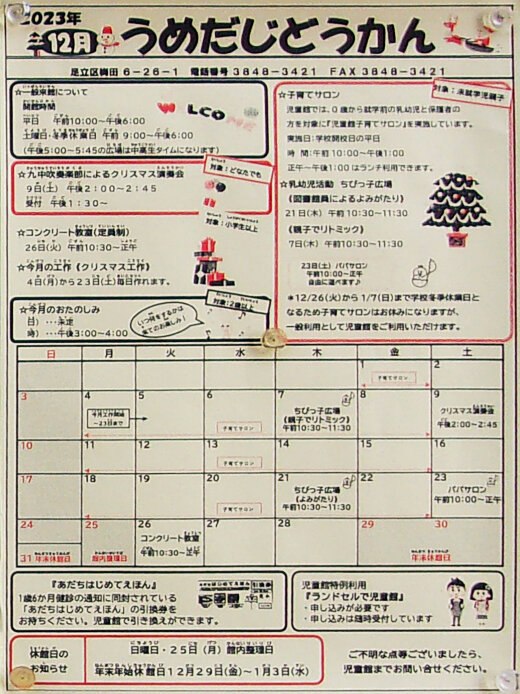 2023年
12月
うめだじどうかん
足立区梅田 6-26-1 電話番号 3848-3421 FAX 3848-3421
☆一般来館について
開館時間
平日 午前10:00~午後6:00
土曜日・冬季休業日 午前 9:00~午後6:00
(午後5:00~5:45の広場は中高生タイムになります)
☆九中吹奏楽部によるクリスマス演奏会
対象:どなたでも
9日(土)午後2:00~2:45
受付 午後1:30~
☆コンクリート教室(定員制)
対象:小学生以上
26日(火)午前10:30~正午
☆今月の工作《クリスマス工作》
4日(月)から23日(土)毎日作れます。
☆今月のおたのしみ
対象:2歳以上
日)…未定
時)…午後3:00~4:00
いつ何をするかは
来てのお楽しみ!
☆子育てサロン
対象:未就学児親子
児童館では、0歳から就学前の乳幼児と保護者の
方を対象に『児童館子育てサロン』を実施しています。
実施日:学校開校日の平日
時 間:午前10:00~午後1:00
正午~午後1:00はランチ利用できます。
☆乳幼児活動 ちびっ子広場
《図書館員によるよみがたり》
21日(木)午前10:30~11:30
《親子でリトミック》
7日(木)午前10:30~11:30
23日(土)パパサロン
午前10:00~正午
自由に遊べます♪
*12/26(火)から1/7(日)まで学校冬季休業日と
なるため子育てサロンはお休みになりますが、
一般利用として児童館をご利用いただけます。
日 月 火 水 木 金 土
1 2
子育てサロン
3 4 5 6 7 8 9
今月工作開始
~23日まで
子育てサロン
ちびっ子広場
《親子でリトミック》
午前10:30~11:30
クリスマス演奏会
午後2:00~2:45
10 11 12 13 14 15 16
子育てサロン
17 18 19 20 21 22 23
子育てサロン
ちびっ子広場
《よみがたり》
午前10:30~11:30
パパサロン
午前10:00~正午
24 25 26 27 28 29 30
31 年末休館日
館内整理日
コンクリート教室
午前10:30~正午
年末休館日
『あだちはじめてえほん』
1歳6か月健診の通知に同封されている
「あだちはじめてえほん」の引換券を
お持ちください。児童館で引き換えができます。
児童館特例利用
『ランドセルで児童館』
・申し込みが必要です
・申し込みは随時受付しています
休館日の
お知らせ
日曜日・25日(月)館内整理日
年末年始休館日12月29日(金)~1月3日(水)
ご不明な点等ございましたら、
児童館までお問い合せください。